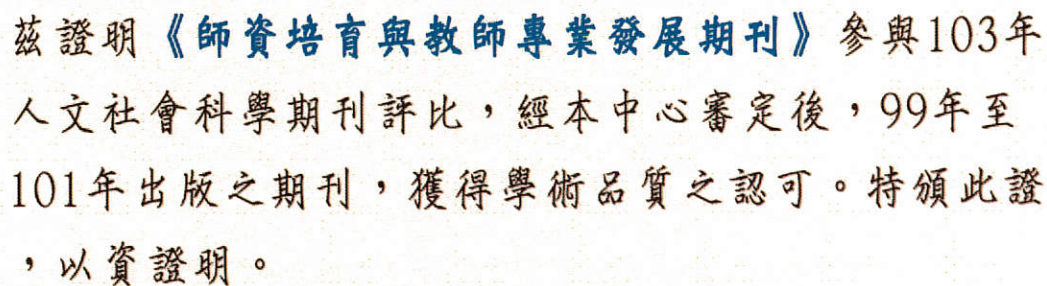 茲證明《師資培育與教師專業發展期刊》參與103年
人文社會科學期刊評比，經本中心審定後，99年至
101年出版之期刊，獲得學術品質之認可。特頒此證
，以資證明。